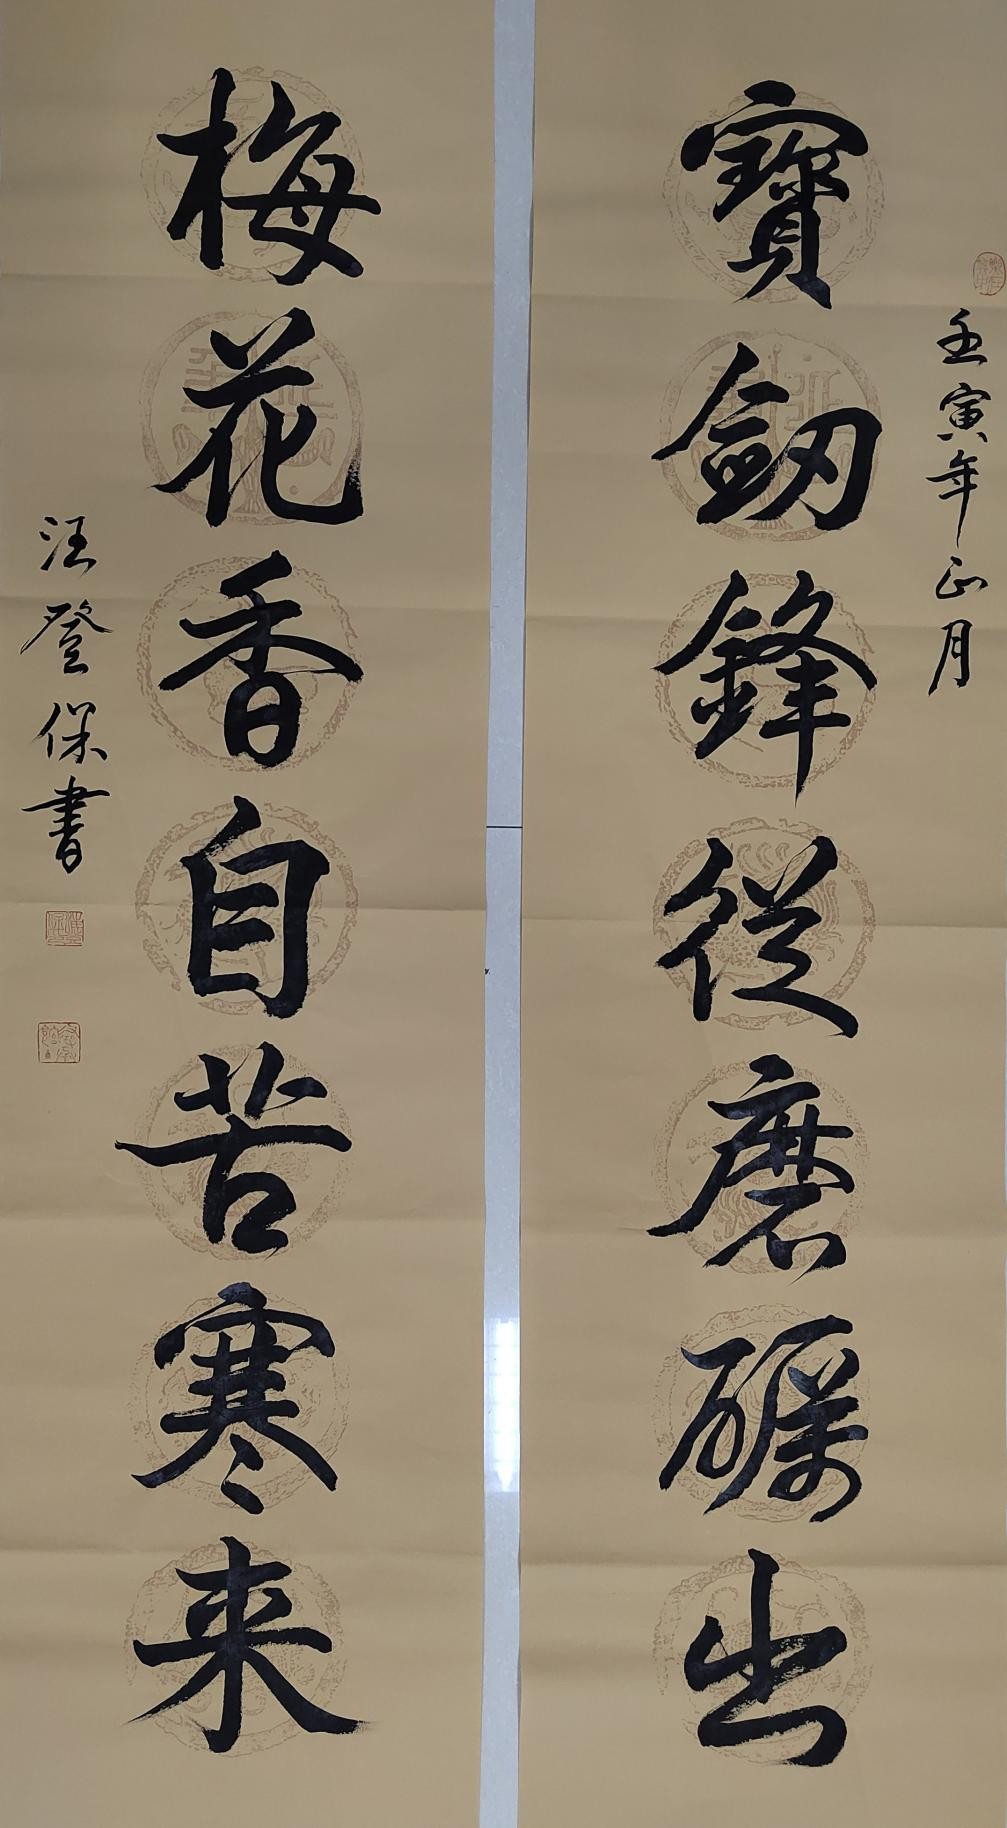 壬寅年正月
寶劔鋒從磨礪出
梅花香自苦寒来
汪登保書